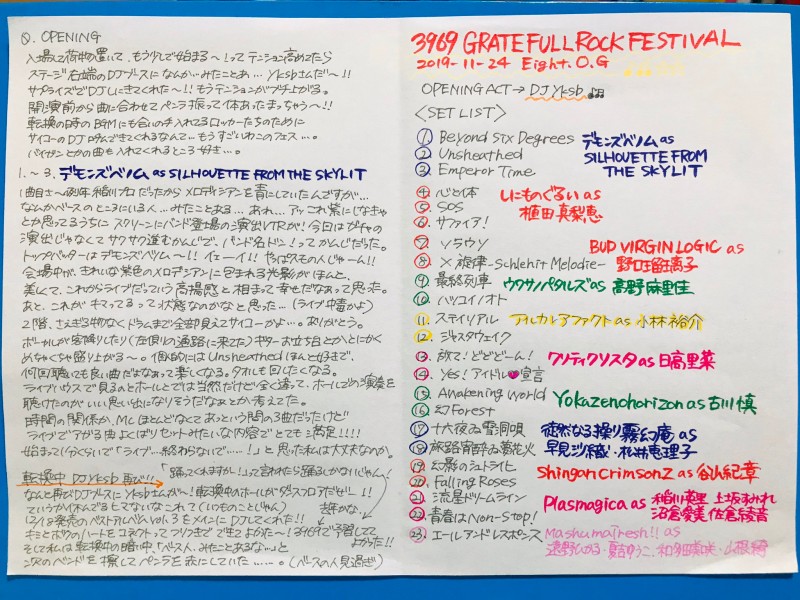 0. OPENING
入場して荷物置いて、もう少しで始まる〜！ってテンション高めてたら
ステージ右端のDJブースになんか…みたことあ…yksbさんだ〜!!
サプライズでDJしにきてくれた〜!! もうテンションがブチ上がる。
開演前から曲に合わせてペンラ振って体あたまっちゃう〜!!
転換の時のBGMにも合いの手入れてるロッカーたちのために
サイコーのDJ呼んできてくれるなんて…もうすごいわこのフェス…。
バイザンとかの曲も入れてくれるところ好き…。
1.〜3. デモンズベノム as SILHOUETTE FROM THE SKYLIT
なんかベースのところにいる人…みたことある…あれ…アッこれ紫にしなきゃ
とか思ってるうちにスクリーンにバンド登場の演出VTRが！今日はガチャの
演出じゃなくてサクサク進むかんじで、バンド名ドン！ってかんじだった。
トップバッターはデモンズベノム〜!! イェーイ!! やばスもの人じゅーん!!
会場中が、きれいな紫色のメロディアンに包まれる光景がほんと、
美しくて、これがライブだっていう高揚感と相まって幸せだなぁって思った。
あと、これがキマってるって状態なのかなと思った…(ライブ中毒かよ)
2階、さえぎる物なくドラムまで全部見えてサイコーかよ…。ありがとう。
ボーカルが客降りしたり(左側の通路に来てた)ギターお立ち台とかとにかく
めちゃくちゃ盛り上がる〜。個人的にはUnsheathedほんと好きで、
何回聴いても良い曲だなぁって楽しくなる。タオルも回したくなる。
ライブハウスで見るのとホールとでは当然だけど全く違って、ホールでの演奏を
聴けたのがいい思い出になりそうだなぁとか考えてた。
時間の関係か、MCほとんどなくてあっという間の3曲だったけど
ライブでアガる曲よくばりセットみたいな内容でとても満足!!!!
始まって1分くらいで「ライブ…終わらないで……！」と思った私は大丈夫なのか。
転換中 DJ Yksb 再び!! 「踊ってくれますか！」って言われたら踊るしかないじゃん！
なんと再びDJブースにYksbさんが〜！転換中のホールがダンスフロアだぜー!!
ていうかイベでるヒマないなこれて(いつものことじゃん)
12/18発売のベストアルバムvol.3をメインにDJしてくれた!!
キミとボクのハートをコネクトってフリつきで生でよかた〜！3969で予習してて
よかった!!
そして私は転換中の暗い中、「ベースの人、みたことあるな…」と
次のバンドを察してペンラを赤にしていた……。(ベースの人見過ぎ)
3969 GRATEFULL ROCK FESTIVAL
2019-11-24 Eight.O.G
OPENING ACT→DJ Yksb♫
<SET LIST>
① Beyond Six Degrees
② Unsheathed
③ Emperor Time
デモンズベノム as
SILHOUETTE FROM
THE SKYLIT
④ 心と体
⑤ SOS
⑥ サファイア！
しにものぐるい as
植田真梨恵
⑦ ソラウソ
⑧ ×旋律-Schlehit Melodie-
BUD VIRGIN LOGIC as
野口瑠璃子
⑨ 最終列車
⑩ ハツコイノオト
ウワサノペタルズ as 高野麻里佳
⑪ ステイリアル
⑫ ジャスタウェイク
アルカレアファクト as 小林裕介
⑬ 放て！どどどーん！
⑭ Yes！アイドル♥宣言
クリティクリスタ as 日高里菜
⑮ Awakening World
⑯ 幻Forest
Yokazenohorizon as 古川慎
⑰ 十六夜ゐ雪洞唄
⑱ 旅路宵酔ゐ夢花火
徒然なる操り霧幻庵 as
早見沙織・松井恵理子
⑲ 幻影のシュトライヒ
⑳ Falling Roses
ShinganCrimsonZ as 谷山紀章
㉑ 流星ドリームライン
㉒ 青春はNon-Stop！
Plasmagica as 稲川英里 上坂すみれ
沼倉愛美 佐倉綾音
㉓ エールアンドレスポンス
Mashumairesh!! as
遠野ひかる・夏吉ゆうこ・和多田美咲・山根綺